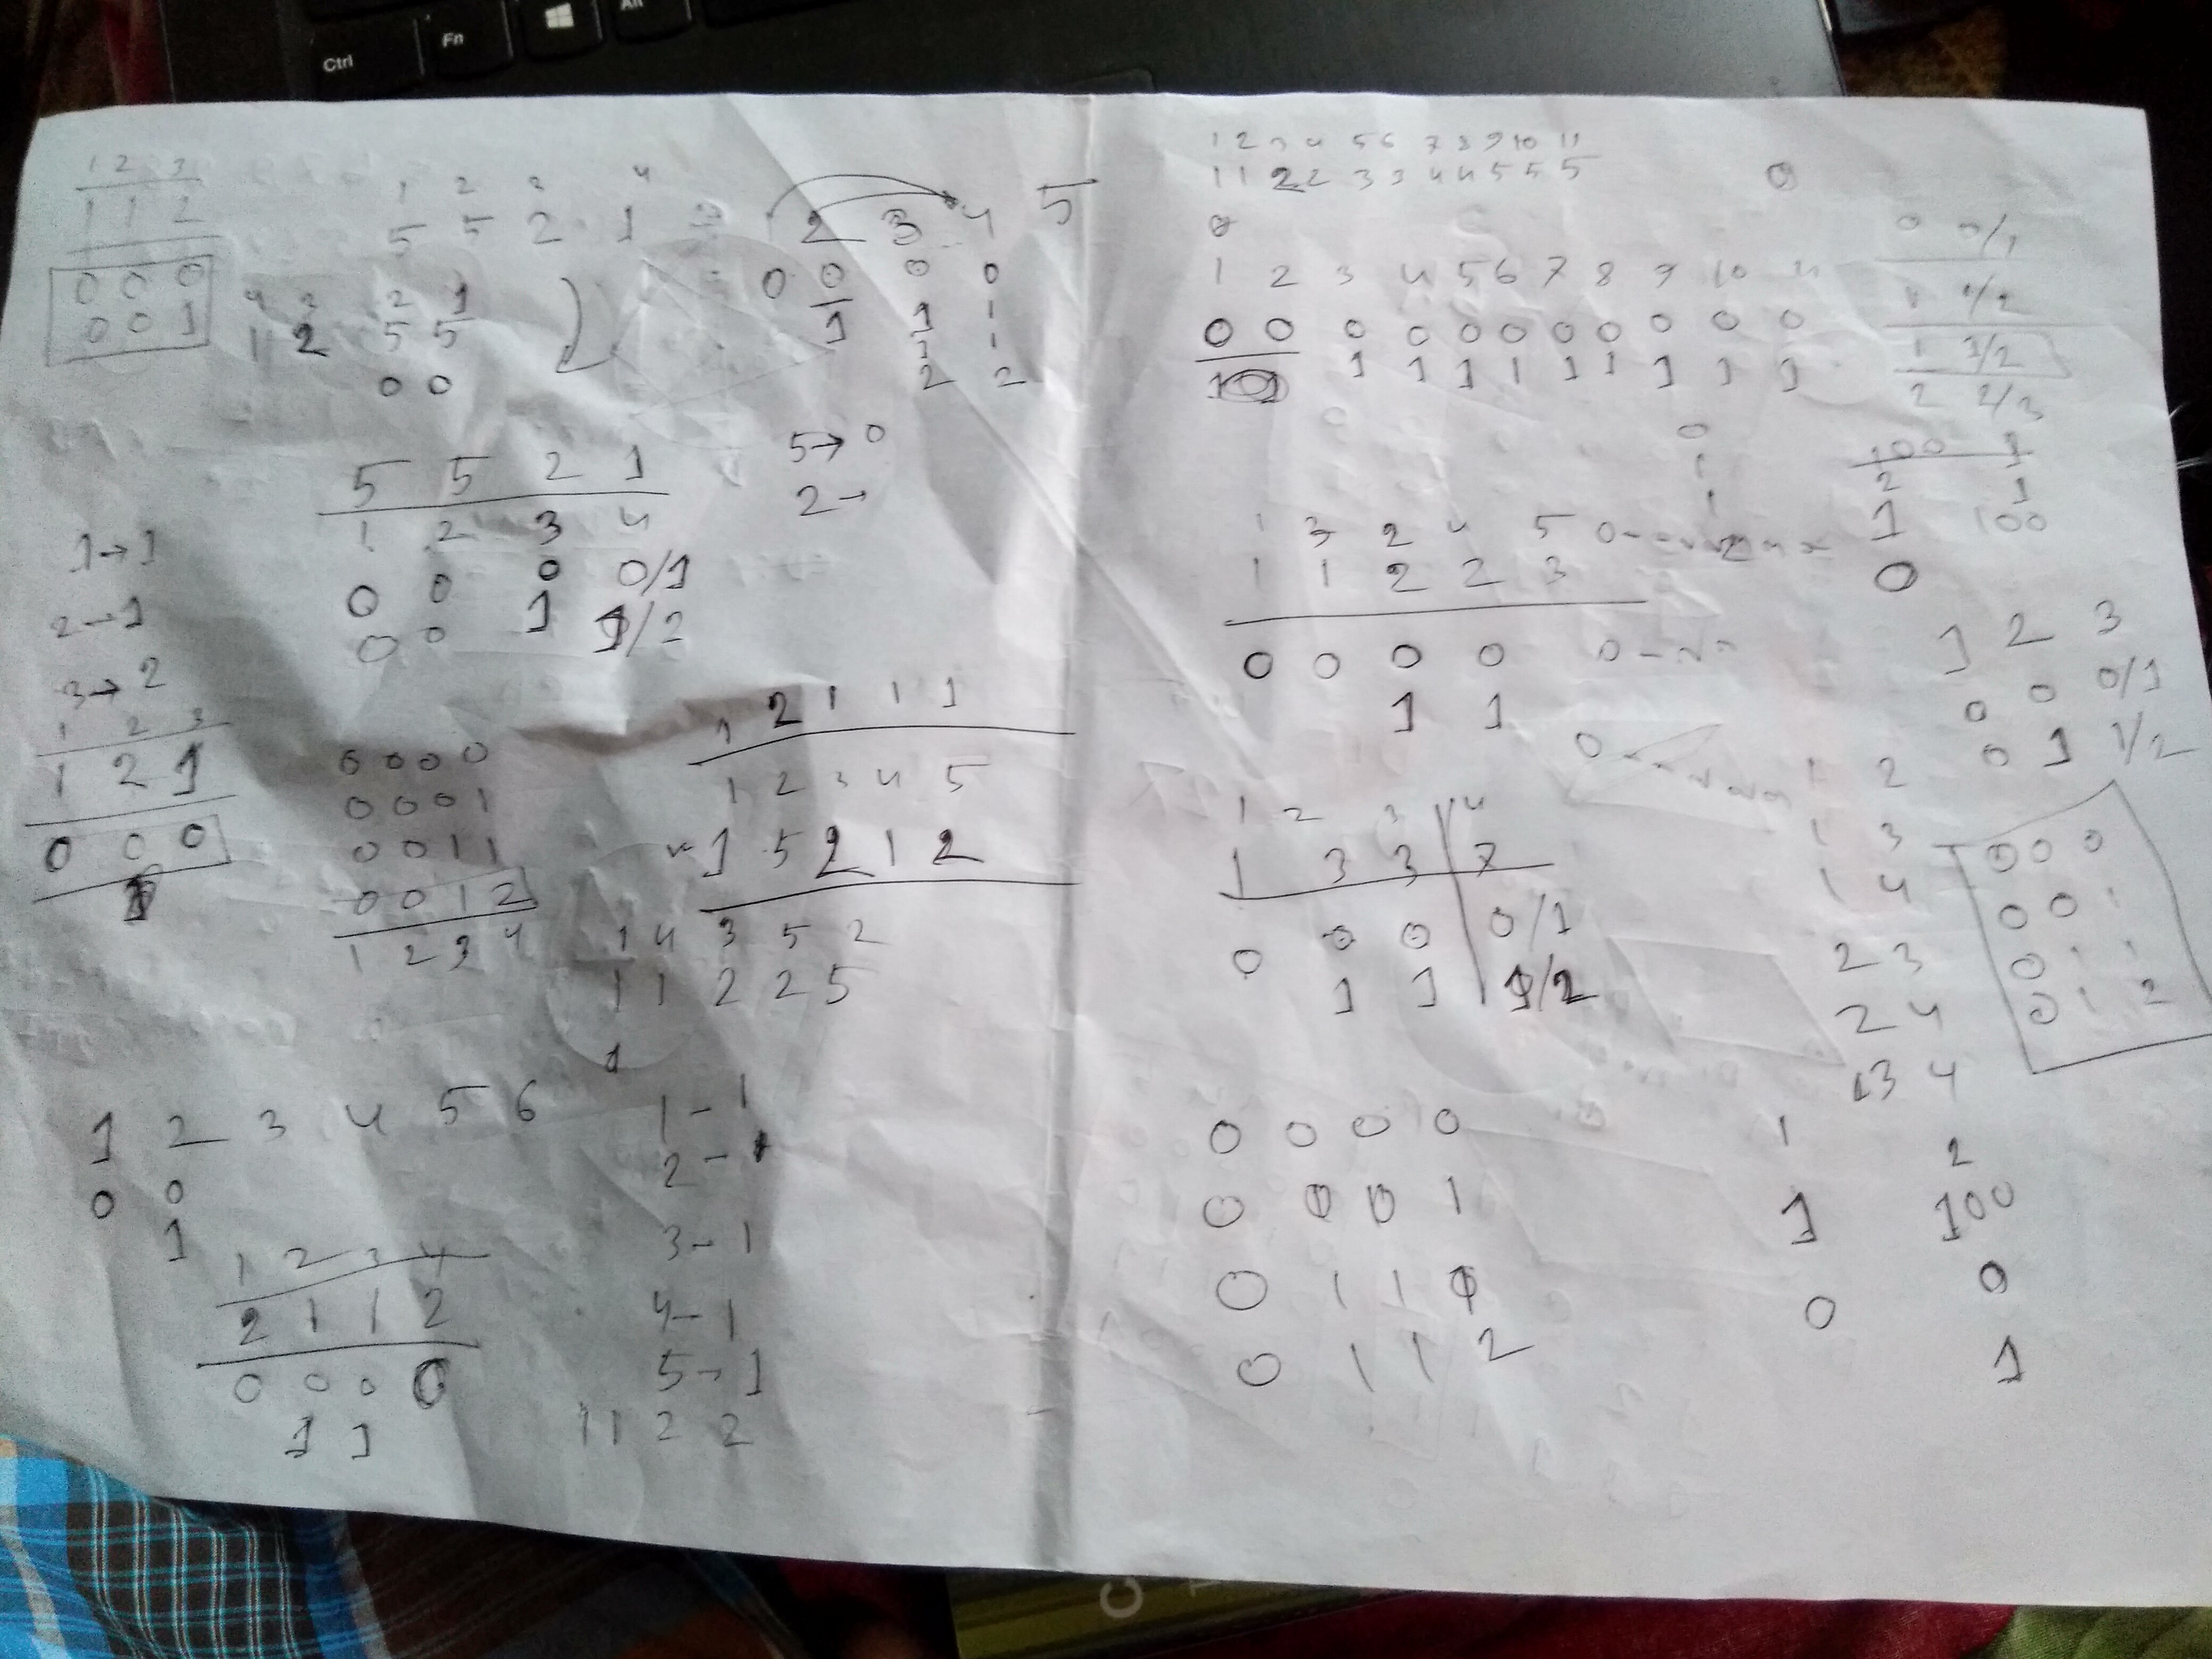 Ctrl Fn Alt
1 2 3
1 1 2
0 0 0
0 0 1
1 2 3 4
5 5 2 1
4 3 2 1
1 2 5 5
0 0
2 3 4 5
0 0 0 0
1 1 1
2 2
5 → 0
2 →
5 5 2 1
1 2 3 4
0 0 0 0/1
0 0 1 1/2
1 → 1
2 → 1
3 → 2
1 2 3
1 2 1
0 0 0
0 0 0 0
0 0 0 1
0 0 1 1
0 0 1 2
1 2 3 4
1 2 1 1 1
1 2 3 4 5
1 5 2 1 2
1 4 3 5 2
1 1 2 2 5
1
1 2 3 4 5 6
0 0
1
1 2 3 4
2 1 1 2
0 0 0 0
1 1
1 - 1
2 -
3 - 1
4 - 1
5 - 1
1 1 2 2
1 2 3 4 5 6 7 8 9 10 11
1 1 2 2 3 3 4 4 5 5 5
0
1 2 3 4 5 6 7 8 9 10 11
0 0 0 0 0 0 0 0 0 0 0
1 1 1 1 1 1 1 1 1
0 0/1
1 1/2
1 1/2
2 2/3
0
1
1
100 1
2 1
1 100
0
1 3 2 4 5
1 1 2 2 3
0 0 0 0
1 1
1 2 3
0 0 0/1
0 1 1/2
1 2 3 4
1 3 3 7
0 0 0 0/1
1 1 1/2
1 2
1 3
1 4
2 3
2 4
3 4
0 0 0
0 0 1
0 1 1
0 1 2
0 0 0 0
0 0 0 1
0 1 1 1
0 1 1 2
1 2
1 100
0 0
1